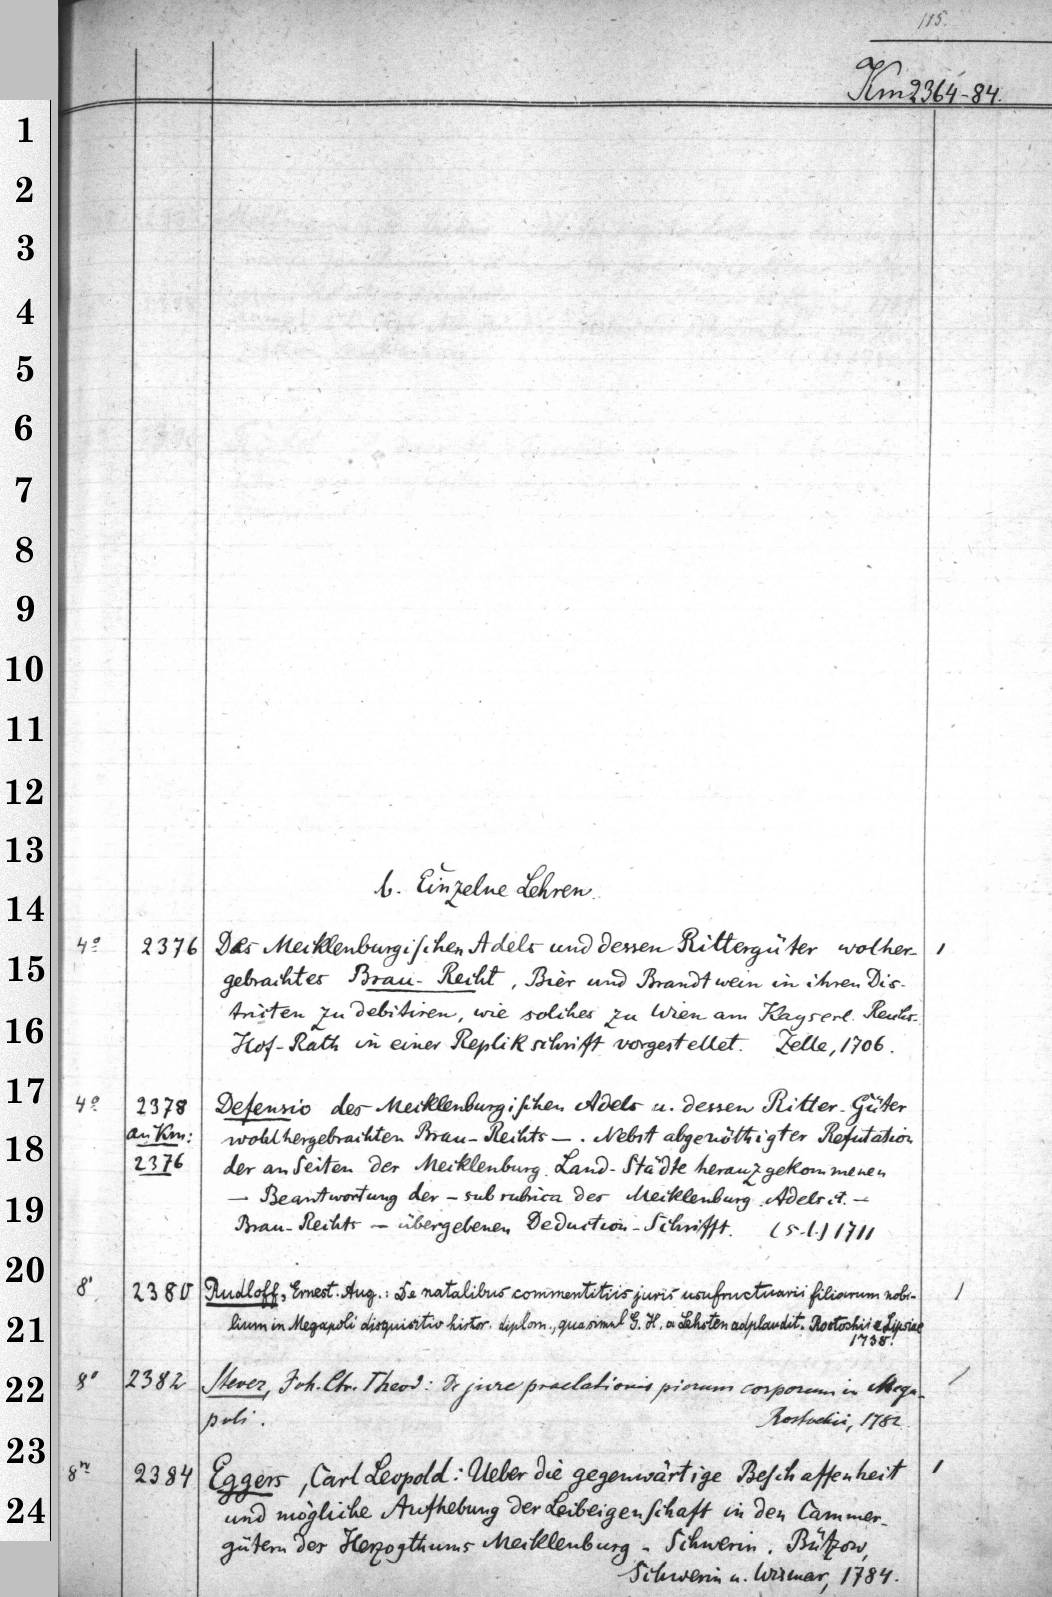 115.
Km 2364-84.
b. Einzelne Lehren.
4º 2376 Des Mecklenburgischen Adels und dessen Rittergüter wolher- 1
gebrachtes Brau-Recht, Bier und Brandtwein in ihren Dis-
tricten zu debitiren, wie solches zu Wien am Kayserl. Reichs-
Hof-Rath in einer Replikschrift vorgestellet. Zelle, 1706.
4º 2378 Defensio des Mecklenburgischen Adels u. dessen Ritter-Güter
an Km: wohlhergebrachten Brau-Rechts —. Nebst abgenöthigter Refutation
2376 der an Seiten der Mecklenburg. Land-Städte herauzgekommenen
— Beantwortung der – sub rubrica des Mecklenburg. Adels it. —
Brau-Rechts — übergebenen Deduction-Schrifft. (s.l.) 1711
8' 2380 Rudloff, Ernest. Aug.: De natalibus commentitiis juris usufructuarii filiarum nobi- 1
lium in Megapoli disquisitio histor. diplom., qua simul G. H. a Lehsten adplaudit. Rostochii & Lipsiae
1738.
8º 2382 Stever, Joh. Chr. Theod: De jure praelationis piorum corporum in Mega- 1
poli. Rostochii, 1782
8º 2384 Eggers, Carl Leopold: Ueber die gegenwärtige Beschaffenheit 1
und mögliche Aufhebung der Leibeigenschaft in den Cammer-
gütern des Herzogthums Mecklenburg-Schwerin. Bützow,
Schwerin u. Wismar, 1784.
1
2
3
4
5
6
7
8
9
10
11
12
13
14
15
16
17
18
19
20
21
22
23
24